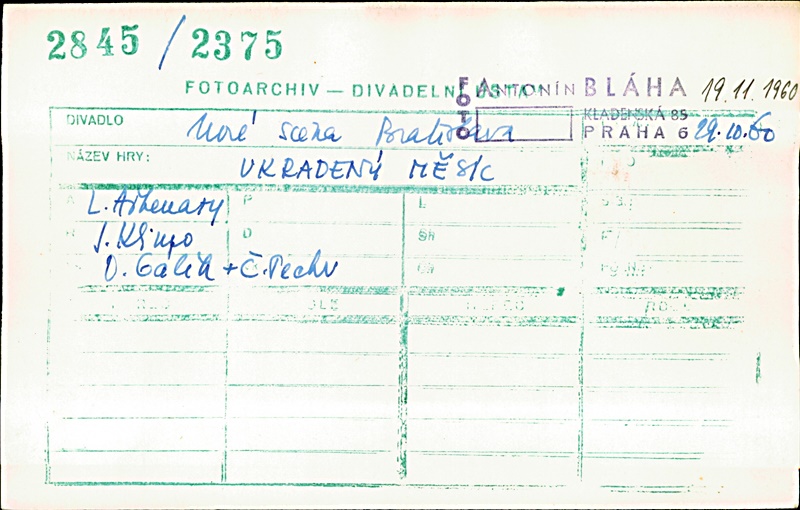 2845 / 2375
FOTOARCHIV — DIVADELNÍ
FOTO ANTONÍN BLÁHA 19.11.1960
KLADENSKÁ 85
PRAHA 6 29.10.60
DIVADLO Nové scena Bratislava
NÁZEV HRY: UKRADENÝ MĚSÍC
A L. Ashenazy P L
J. Klimpo D Sh
O. Galik + Č. Pechr Ch